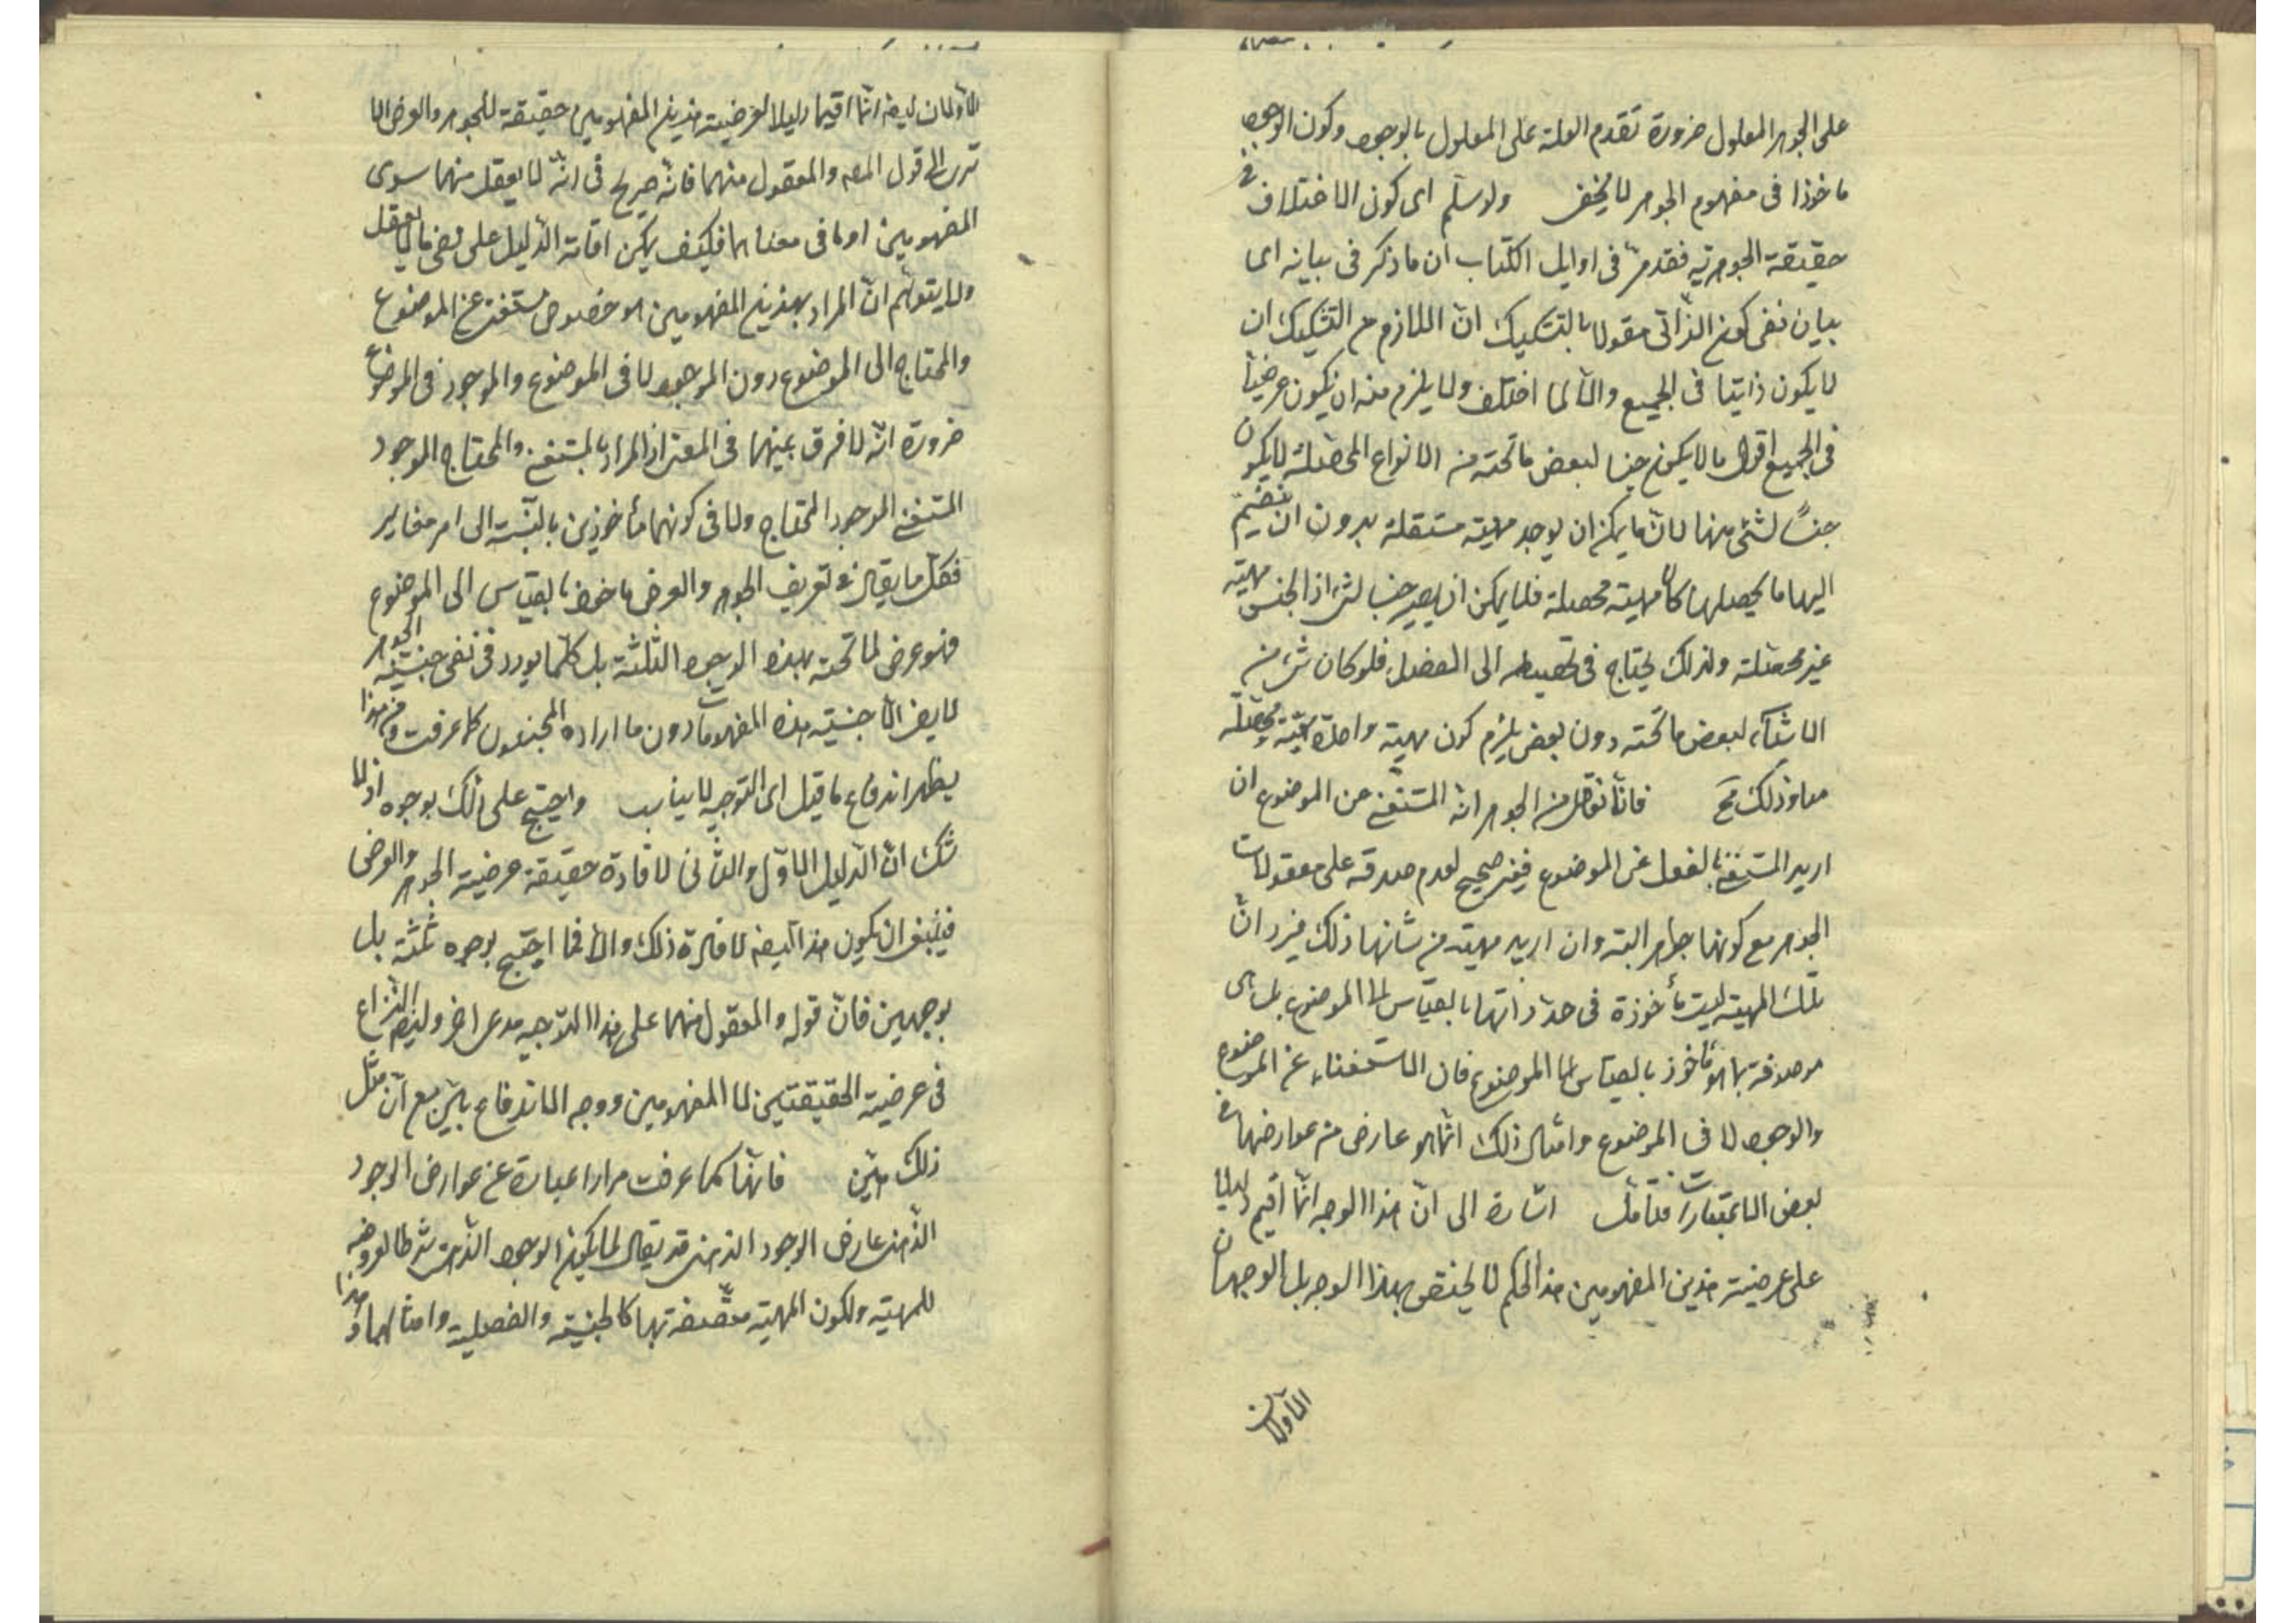 على الجوهر المعلول ضرورة تقدم العلة على المعلول بالوجود وكون الوجود
ماخوذا فى مفهوم الجوهر لا يخفى ولو سلم اى كون الاختلاف فى
حقيقة الجوهرية فقد مر فى اوايل الكتاب ان ما ذكر فى بيانه اى
بيان نفى كون الذاتى مقولا بالتشكيك ان اللازم من التشكيك ان
لا يكون ذاتيا فى الجميع والا لما اختلف ولا يلزم منه ان يكون عرضيا
فى الجميع اقول ما لا يكون جنسا لبعض ما تحته من الانواع المحصلة لا يكون
جنسا لشئ منها لان ما يمكن ان يوجد مهية مستقلة بدون ان ينضم
اليها ما يحصلها كان مهية محصلة فلا يمكن ان يصير جنسا لشئ اذ الجنس مهية
غير محصلة ولذلك يحتاج فى تحصيله الى الفصل فلو كان شئ من
الاشياء لبعض ما تحته دون بعض يلزم كون مهية واحدة محصلة
معا وذلك مح فانا نعقل من الجوهر انه المستغنى عن الموضوع ان
اريد المستغنى بالفعل عن الموضوع فغير صحيح لعدم صدقه على معقولات
الجوهر مع كونها جواهر البتة وان اريد مهية من شانها ذلك فيرد ان
تلك المهية ليست مأخوذة فى حد ذاتها بالقياس الى الموضوع بل هى
موصوفة بما هو مأخوذ بالقياس الى الموضوع فان الاستغناء عن الموضوع
والوجود لا فى الموضوع وامثال ذلك انما هو عارض من عوارضها فى
بعض الاعتبارات فتأمل اشارة الى ان هذا الوجه انما اقيم دليلا
على عرضية هذين المفهومين هذا الحكم لا يختص بهذا الوجه بل الوجهان
الاولان
الاولان ايضا انما اقيما دليلا لعرضية هذين المفهومين حقيقة للجوهر والعرض الا
ترى الى قول المص والمعقول منهما فانه صريح فى انه لا يعقل منهما سوى
المفهومين او ما فى معناهما فكيف يمكن اقامة الدليل على نفى ما لا يعقل
ولا يتوهم ان المراد بهذين المفهومين هو خصوص المستغنى عن الموضوع
والمحتاج الى الموضوع دون الموجود لا فى الموضوع والموجود فى الموضوع
ضرورة انه لا فرق بينهما فى المعنى اذ المراد بالمستغنى والمحتاج الموجود
المستغنى الموجود المحتاج ولا فى كونهما مأخوذين بالنسبة الى امر مغاير
فكل ما يقال فى تعريف الجوهر والعرض ماخوذا بالقياس الى الموضوع
فهو عرض لما تحته بهذه الوجوه الثلثة بل كلما يورد فى نفى جنسية الجوهر
لا ينفى الا جنسية هذه المفهومات دون ما اراده المجنسون كما عرفت ومن هذا
يظهر اندفاع ما قيل اى التوجيه لا يناسب واحتج على ذلك بوجوه اذ لا
شك ان الدليل الاول والثانى لافادة حقيقة عرضية الجوهر والعرض
فينبغى ان يكون هذا ايضا لافادة ذلك والا فما احتج بوجوه ثلثة بل
بوجهين فان قوله والمعقول منهما على هذا التوجيه مدعى اخر وايضا النزاع
فى عرضية الحقيقتين لا المفهومين ووجه الاندفاع بين مع ان مثل
ذلك هين فانها كما عرفت مرارا عبارة عن عوارض الوجود
الذهنى عارض الوجود الذهنى قد يقال لما يكون الوجود الذهنى شرطا لعروضه
للمهية ولكون المهية متصفة بها كالجنسية والفصلية وامثالهما وهذا